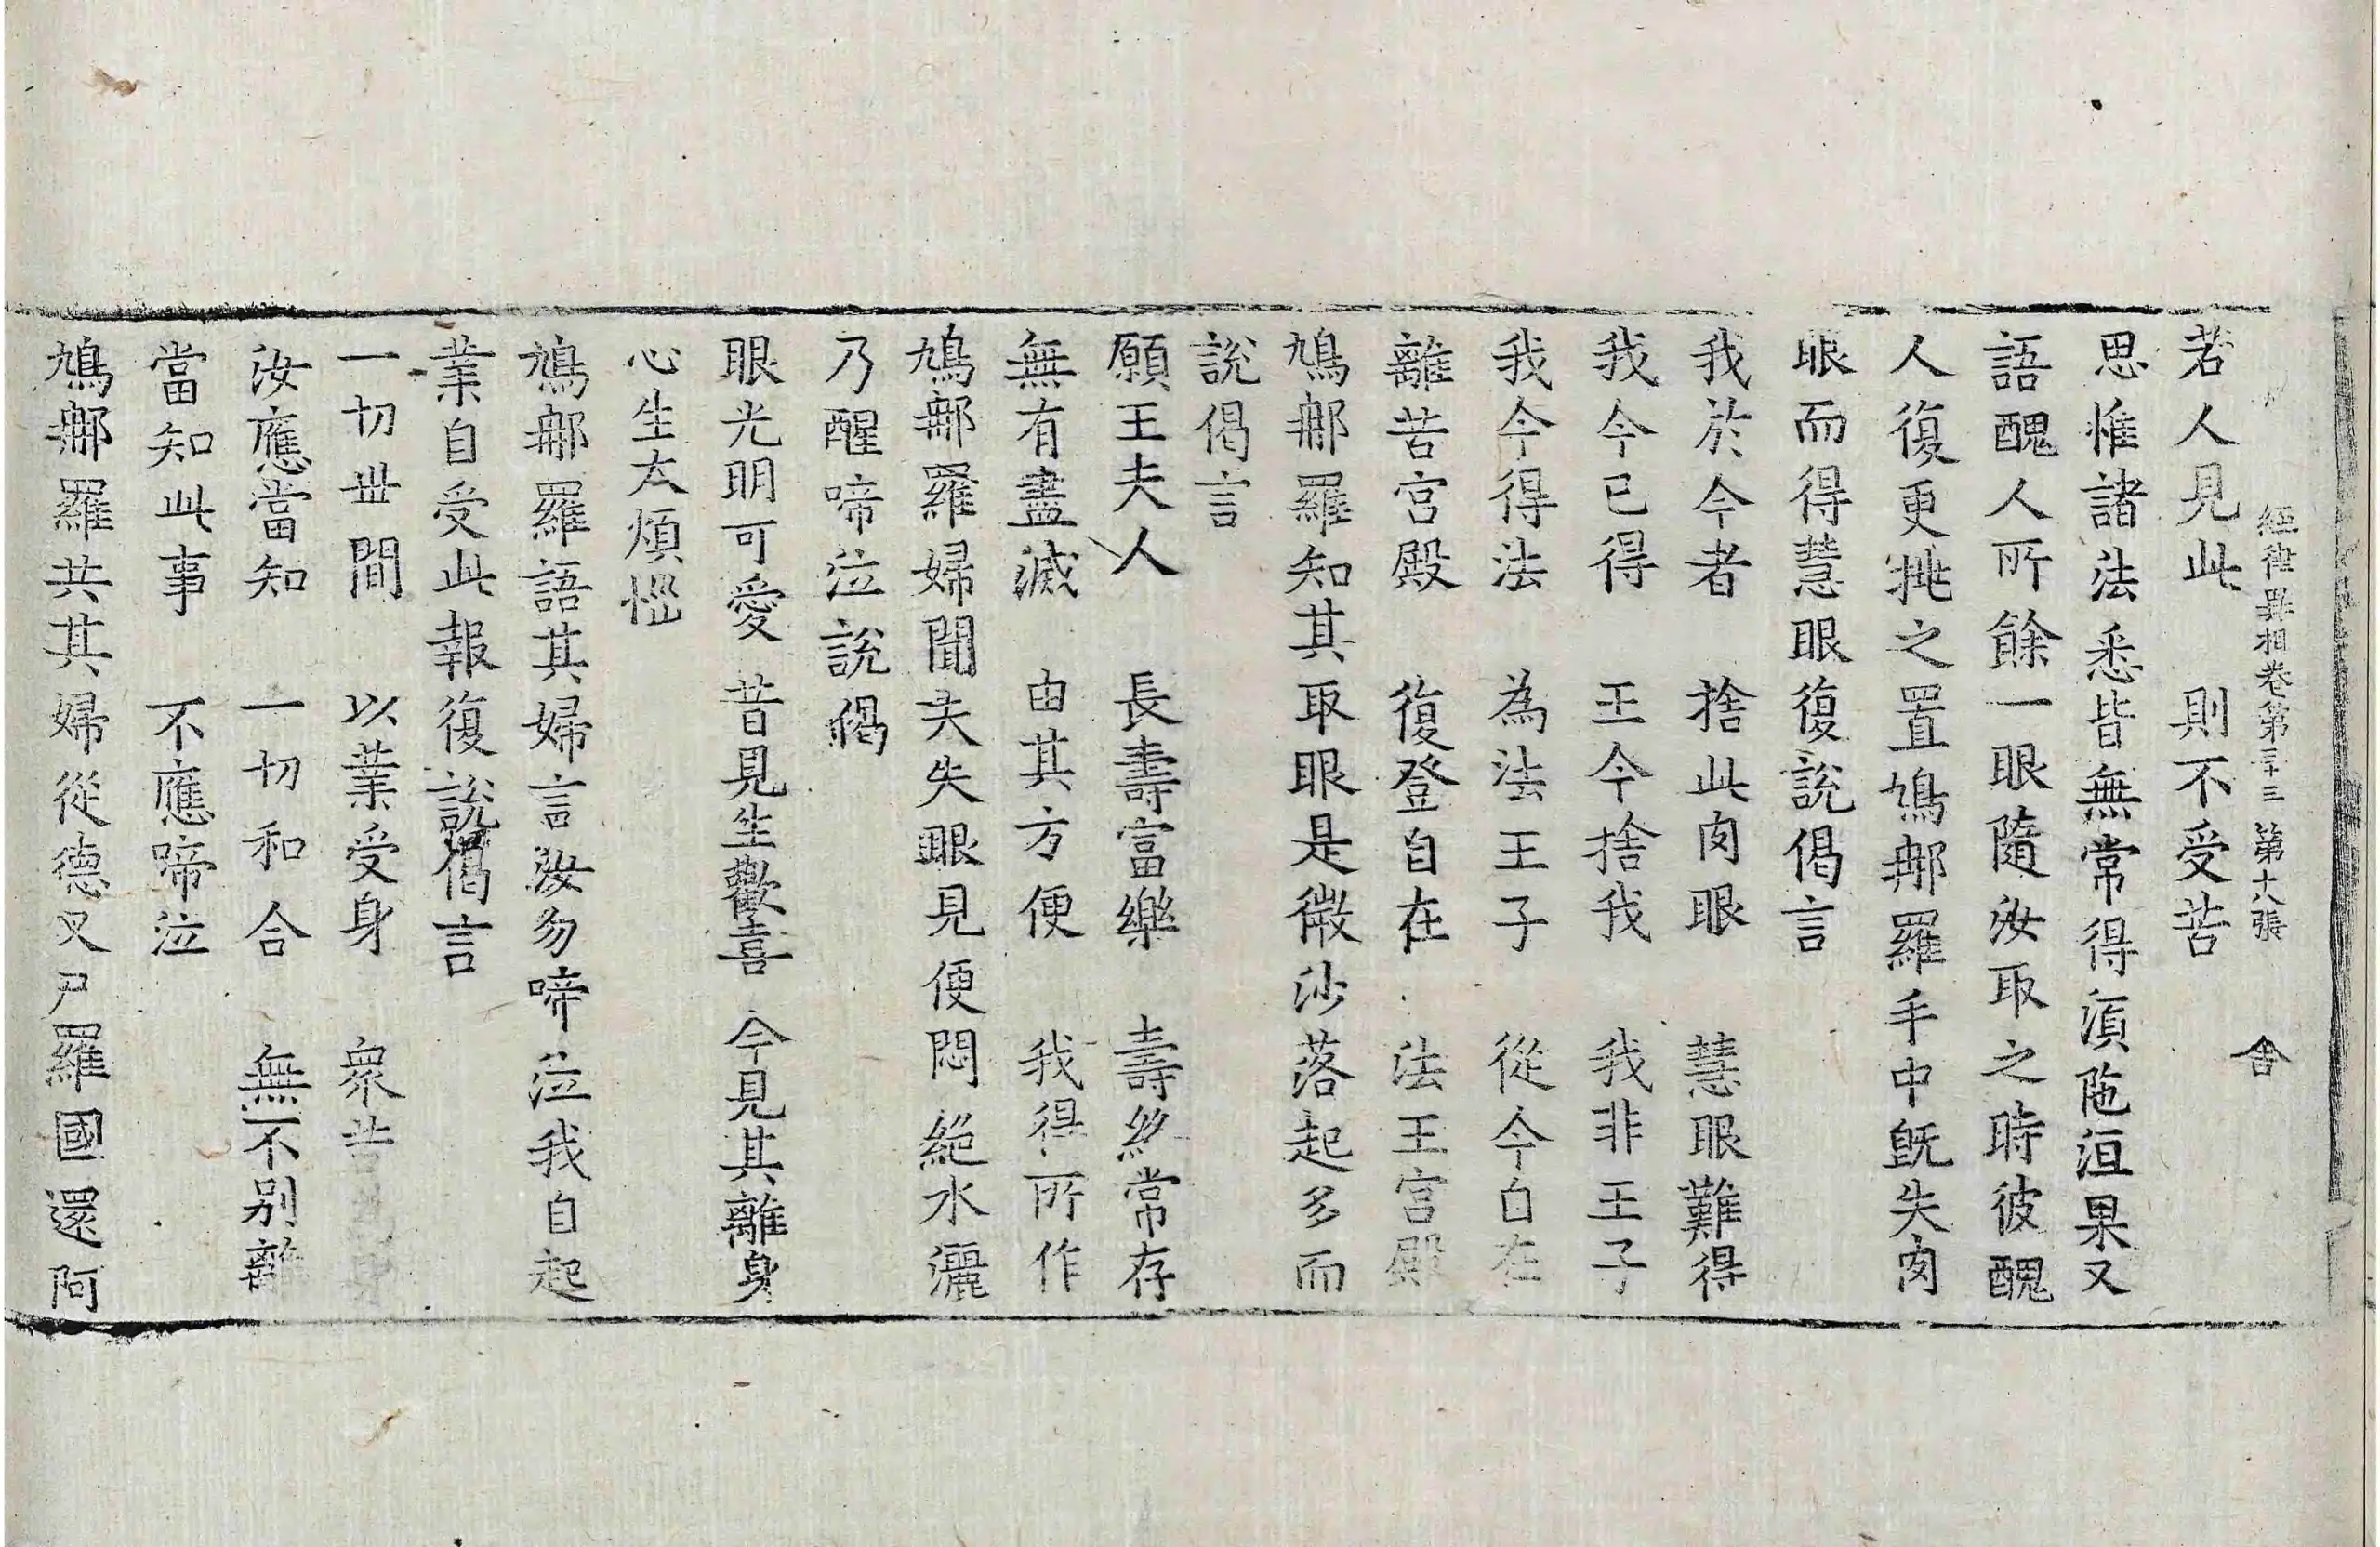 經律異相卷第三十三 第十八張 舎
若人見此 則不受苦
思惟諸法悉皆無常得湏陁洹果又
語醜人所餘一眼隨汝取之時彼醜
人復更挑之置鳩𨙻羅手中旣失肉
眼而得慧眼復說偈言
我於今者 捨此肉眼 慧眼難得
我今已得 王今捨我 我非王子
我今得法 為法王子 從今自在
離苦宫殿 復登自在 法王宫殿
鳩𨙻羅知其取眼是微沙落起多而
說偈言
願王夫人 長壽富樂 壽終常存
無有盡滅 由其方便 我得所作
鳩𨙻羅婦聞夫失眼見便悶絕水灑
乃醒啼泣說偈
眼光明可愛 昔見生歡喜 今見其離身
心生大煩惱
鳩𨙻羅語其婦言汝勿啼泣我自起
業自受此報復說偈言
一切世間 以業受身 衆苦身
汝應當知 一切和合 無不别離
當知此事 不應啼泣
鳩𨙻羅共其婦從德叉尸羅國還阿